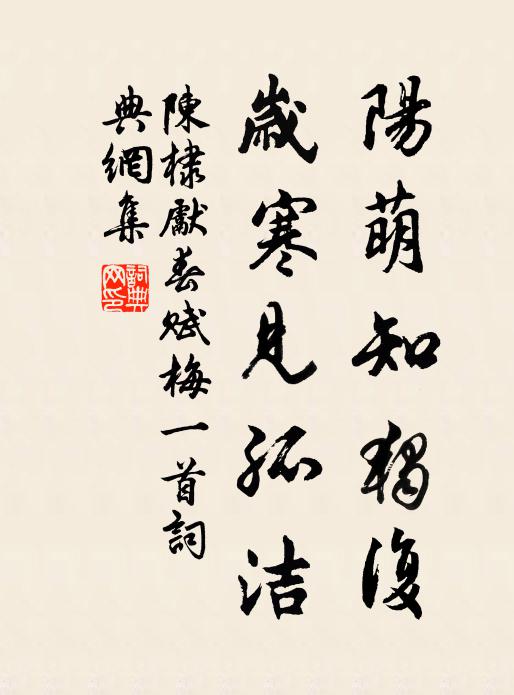 陽萌知獨復
歲寒見孤洁
陳棣獻春賦梅一首詞
典網集
詞典網印